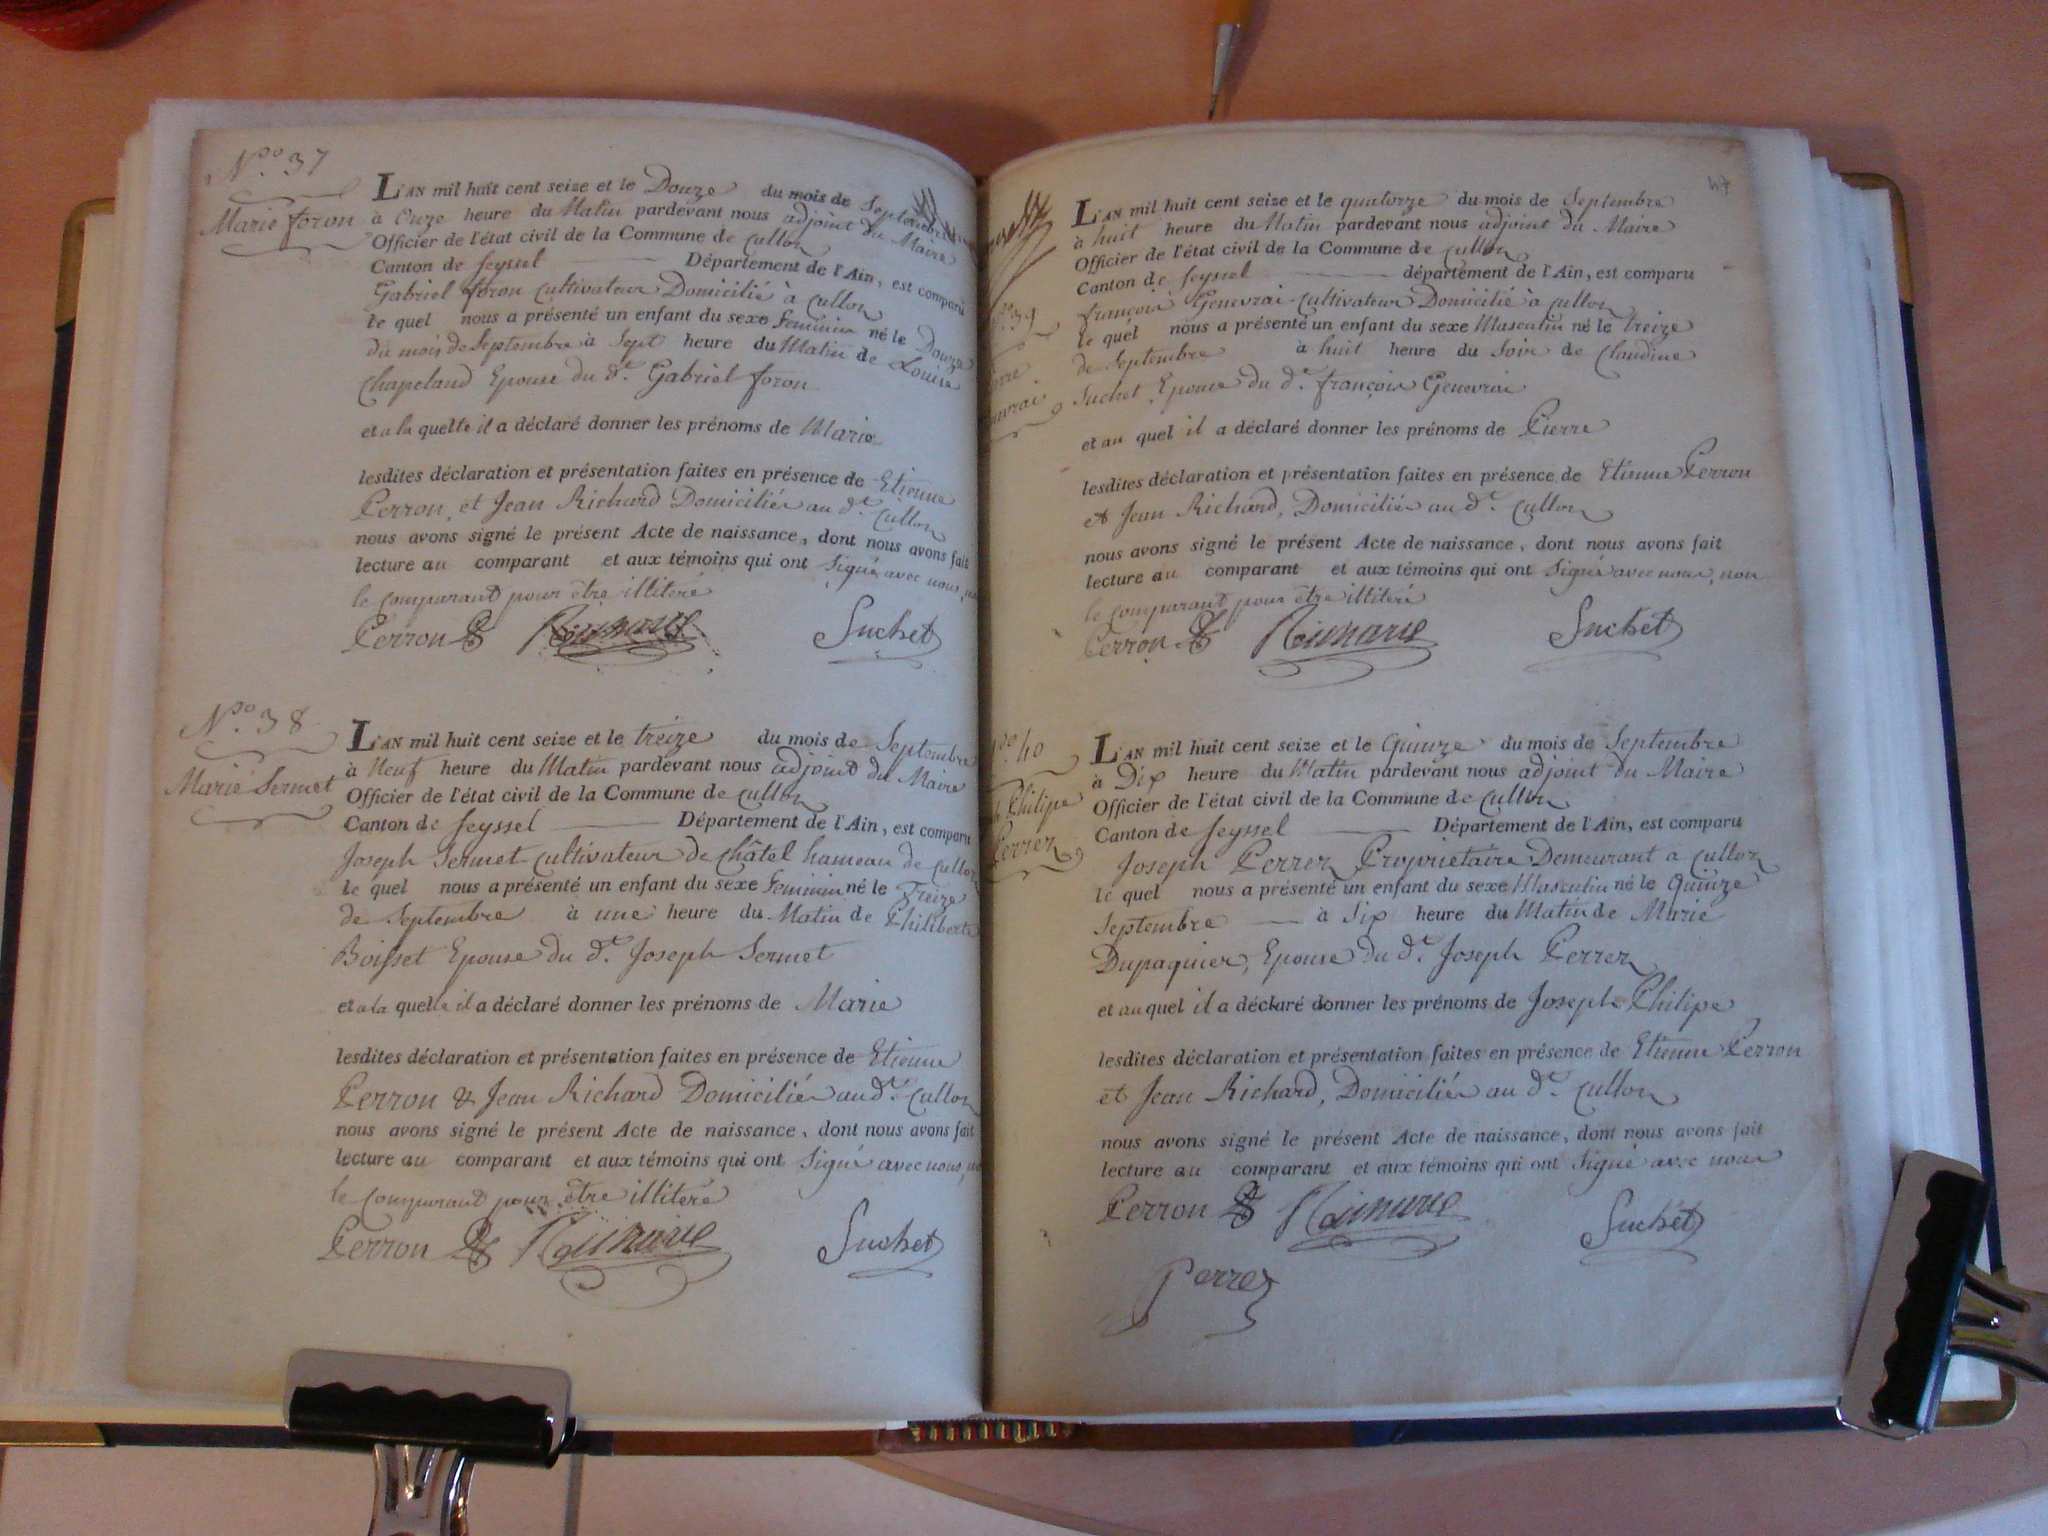 N.º 37
Marie foron
L'AN mil huit cent seize et le Douze du mois de Septembre
à Onze heure du Matin pardevant nous adjoint du Maire
Officier de l'état civil de la Commune de Culloz
Canton de Seyssel Département de l'Ain, est comparu
Gabriel foron Cultivateur Domicilié à Culloz
le quel nous a présenté un enfant du sexe feminin né le Douze
du mois de Septembre à Sept heure du Matin de Louise
Chapeland Epouse du d.t Gabriel foron
et a la quelle il a déclaré donner les prénoms de Marie
lesdites déclaration et présentation faites en présence de Etienne
Perron, et Jean Richard Domiciliés au d.t Culloz
nous avons signé le présent Acte de naissance, dont nous avons fait
lecture au comparant et aux témoins qui ont Signé avec nous
le comparant pour être illitéré
Perron Suchet
N.º 38
Marie Sermet
L'AN mil huit cent seize et le treize du mois de Septembre
à Neuf heure du Matin pardevant nous adjoint du Maire
Officier de l'état civil de la Commune de Culloz
Canton de Seyssel Département de l'Ain, est comparu
Joseph Sermet Cultivateur de Châtel hameau de Culloz
le quel nous a présenté un enfant du sexe feminin né le Treize
de Septembre à une heure du Matin de Philiberte
Boisset Epouse du d.t Joseph Sermet
et a la quelle il a déclaré donner les prénoms de Marie
lesdites déclaration et présentation faites en présence de Etienne
Perron & Jean Richard Domiciliés au d.t Culloz
nous avons signé le présent Acte de naissance, dont nous avons fait
lecture au comparant et aux témoins qui ont Signé avec nous,
le comparant pour être illitéré
Perron Suchet
47
39
L'AN mil huit cent seize et le quatorze du mois de Septembre
à huit heure du Matin pardevant nous adjoint du Maire
Officier de l'état civil de la Commune de Culloz
Canton de Seyssel département de l'Ain, est comparu
françois Genevrai Cultivateur Domicilié à Culloz
le quel nous a présenté un enfant du sexe Masculin né le treize
de Septembre à huit heure du Soir de Claudine
Suchet Epouse du d.t françois Genevrai
et au quel il a déclaré donner les prénoms de Pierre
lesdites déclaration et présentation faites en présence de Etienne Perron
et Jean Richard, Domiciliés au d.t Culloz
nous avons signé le présent Acte de naissance, dont nous avons fait
lecture au comparant et aux témoins qui ont Signé avec nous, non
le comparant pour être illitéré
Perron Suchet
40
Philipe
Perrez
L'AN mil huit cent seize et le Quinze du mois de Septembre
à Dix heure du Matin pardevant nous adjoint du Maire
Officier de l'état civil de la Commune de Culloz
Canton de Seyssel Département de l'Ain, est comparu
Joseph Perrez Propriétaire Demeurant a Culloz
le quel nous a présenté un enfant du sexe Masculin né le Quinze
Septembre à Six heure du Matin de Marie
Dupaquier, Epouse du d.t Joseph Perrez
et au quel il a déclaré donner les prénoms de Joseph Philipe
lesdites déclaration et présentation faites en présence de Etienne Perron
et Jean Richard, Domiciliés au d.t Culloz
nous avons signé le présent Acte de naissance, dont nous avons fait
lecture au comparant et aux témoins qui ont Signé avec nous
Perron Suchet
Perrez